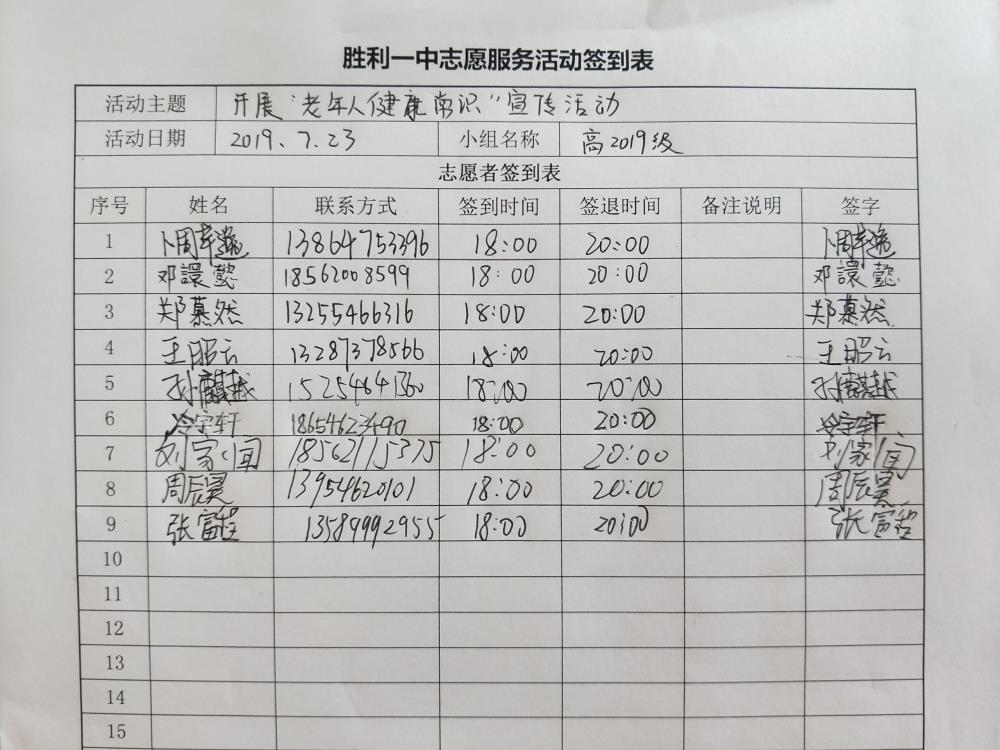 胜利一中志愿服务活动签到表
活动主题 开展“老年人健康常识”宣传活动
活动日期 2019.7.23 小组名称 高2019级
志愿者签到表
序号 姓名 联系方式 签到时间 签退时间 备注说明 签字
1 卜周幸逸 13864753396 18:00 20:00 卜周幸逸
2 邓譞懿 18562008599 18:00 20:00 邓譞懿
3 郑慕然 13255466316 18:00 20:00 郑慕然
4 王昭云 13287378566 18:00 20:00 王昭云
5 孙麒越 15254641360 18:00 20:00 孙麒越
6 冷宇轩 18654623490 18:00 20:00 冷宇轩
7 刘家闻 18562115375 18:00 20:00 刘家闻
8 周辰昊 13954620101 18:00 20:00 周辰昊
9 张富程 13589992955 18:00 20:00 张富程
10
11
12
13
14
15